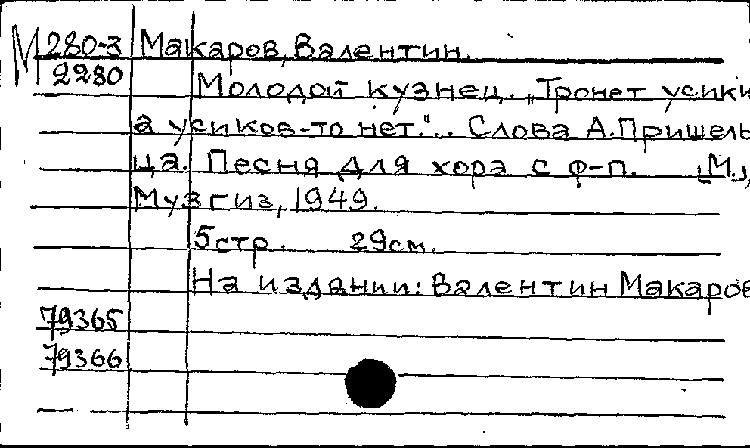 М 280-3 Макаров, Валентин.
2280 Молодой кузнец. „Тронет усики,
а усиков-то нет."... Слова А.Пришель-
ца. Песня для хора с ф-п. [М.],
Музгиз, 1949.
5стр. 29см.
На издании: Валентин Макаров
79365
79366